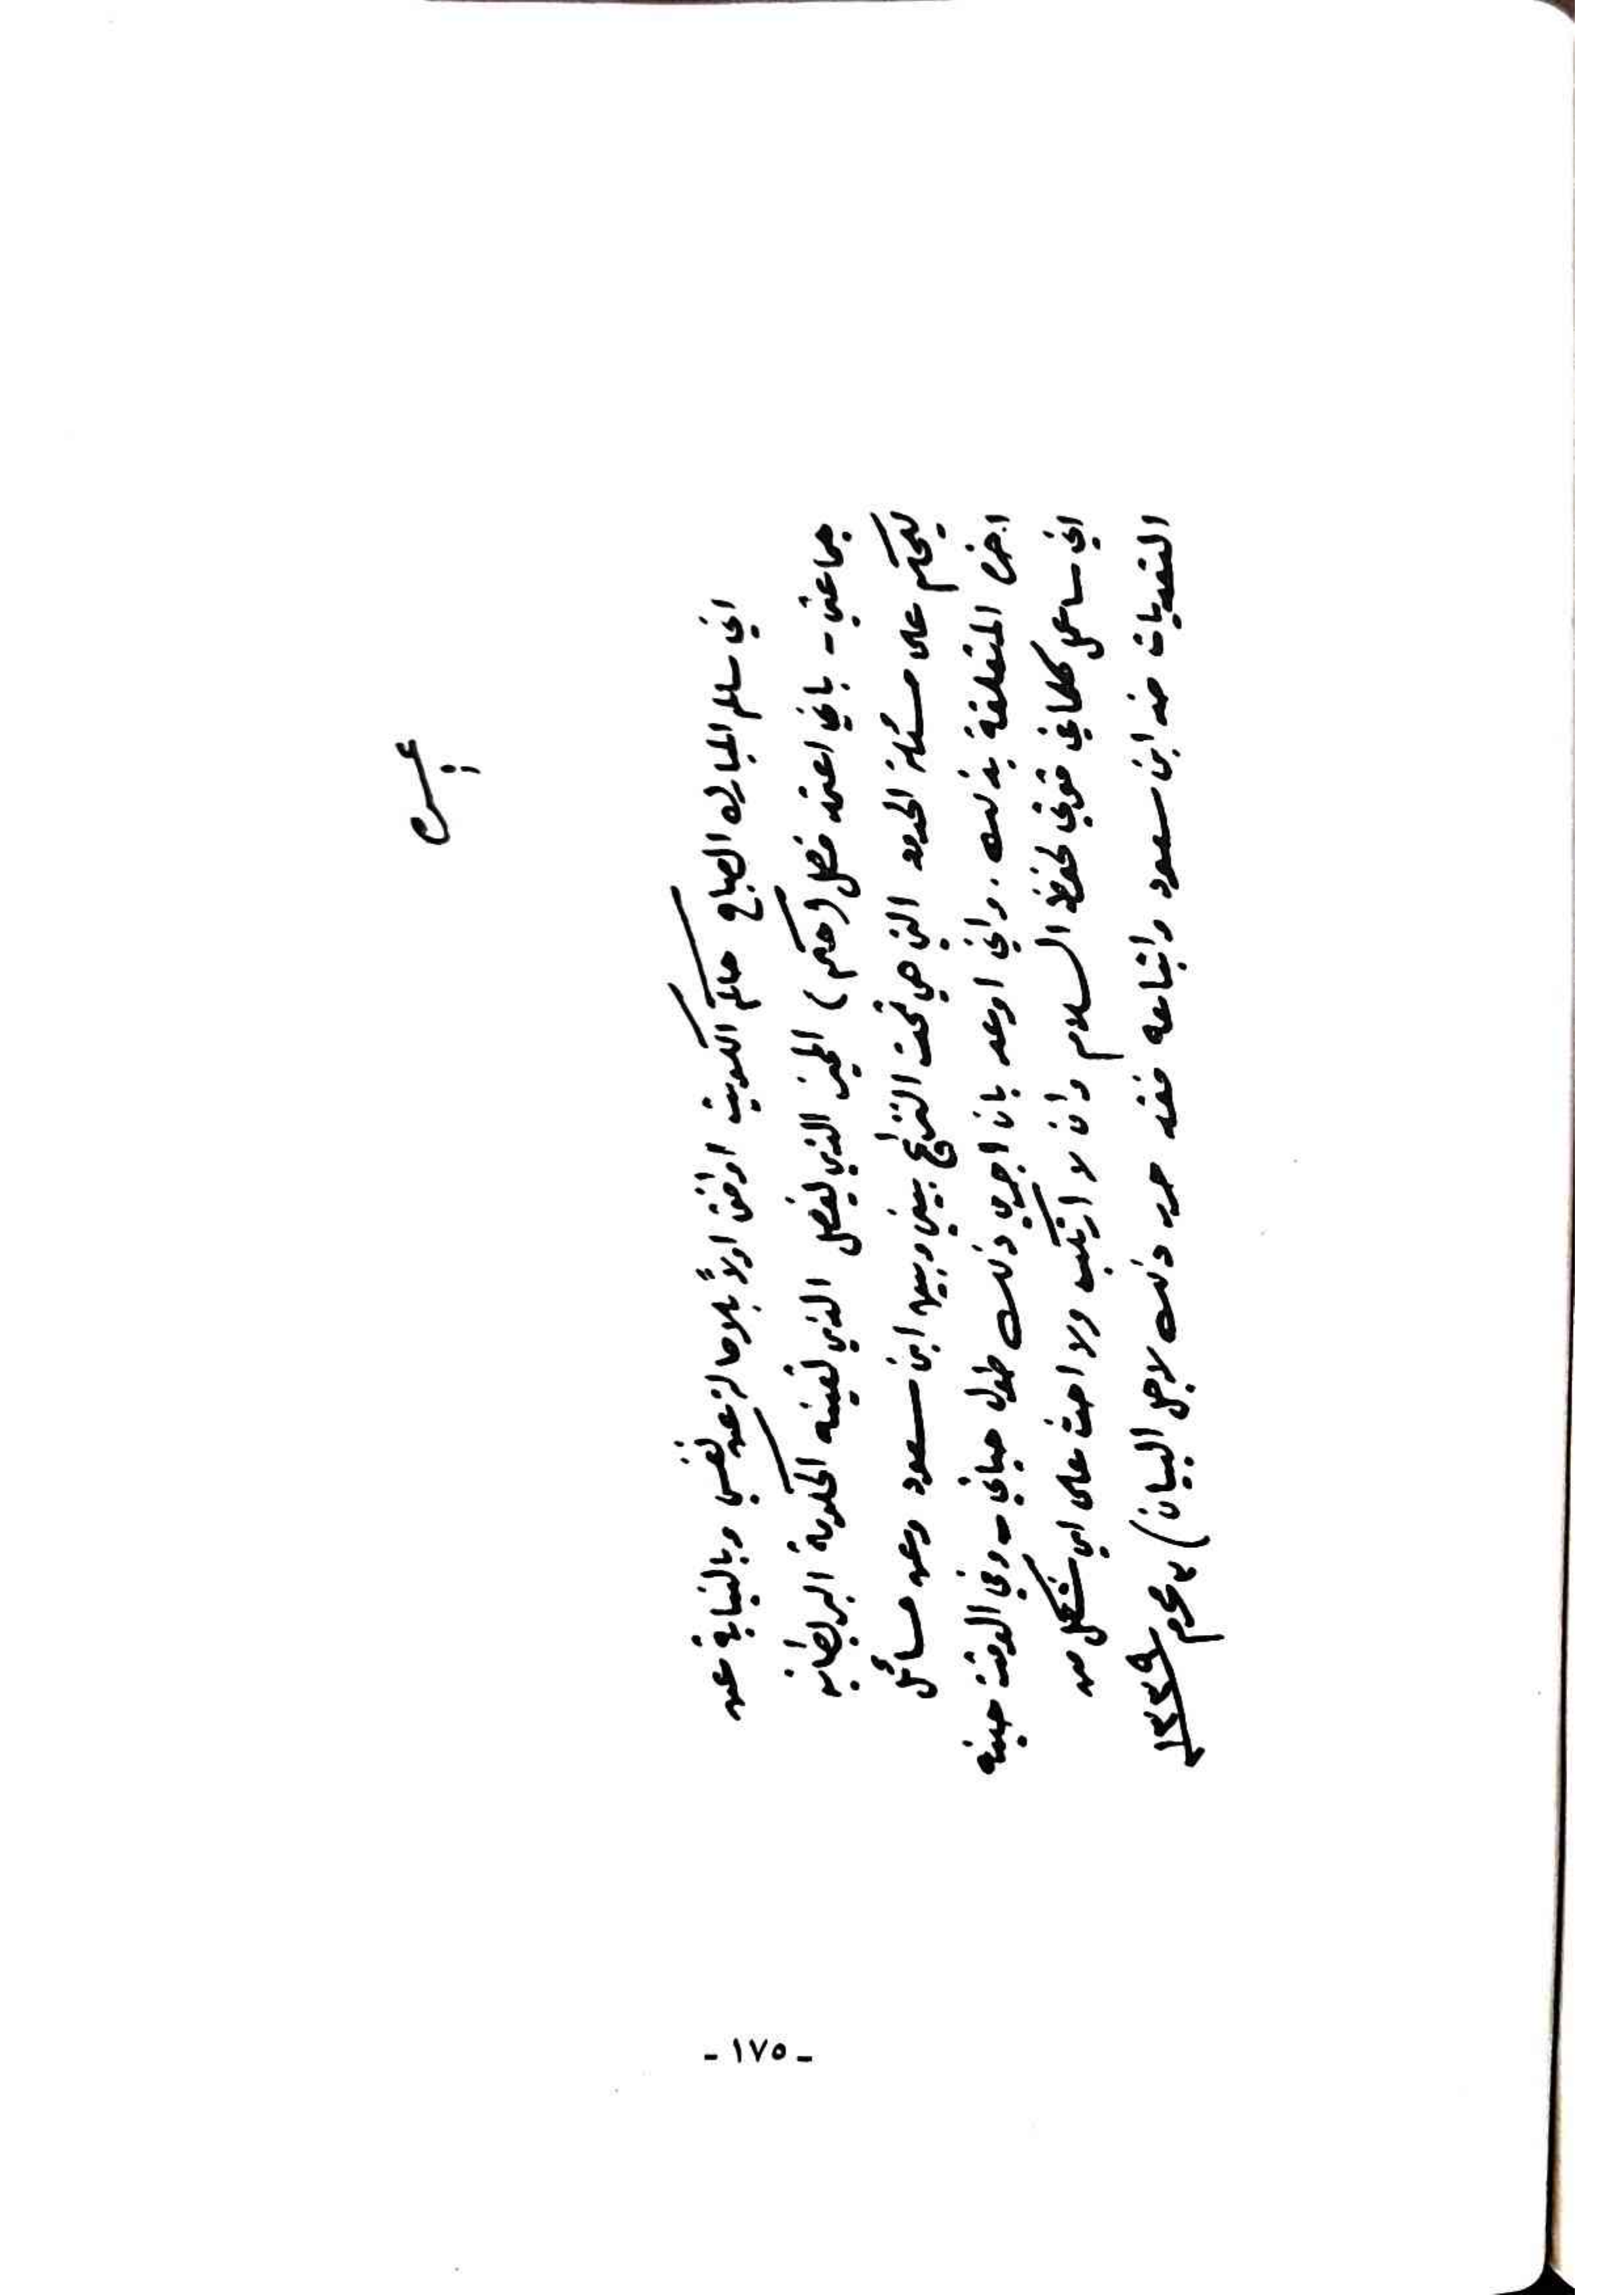 اني سالم المبارك الصباح حاكم الكويت اوافق اولاً بلاصالة عن نفسي وبالنيابة عن
جماعتي - باني اعتمد فصل (حكم) المميز الذي يفصل الذي تعينه الحكومة البريطانية
ليحكم على مسئلة الحدود التي هي تحت التنازع بيني وبين ابن سعود وعن مسائل
اخرى المتعلقة بذلك. واني اوعد بان اجري ذلك طول حياتي - وفي الوقت حينه
اني ساعمل كلما في قوتي لحفظ السلام وان لا ارتكب ولا احث على اي شكل من
التعديات ضد ابن سعود واتباعه فقد حرر ذلك لاجل البيان) محرم ١٣٣٩
- ١٧٥ -